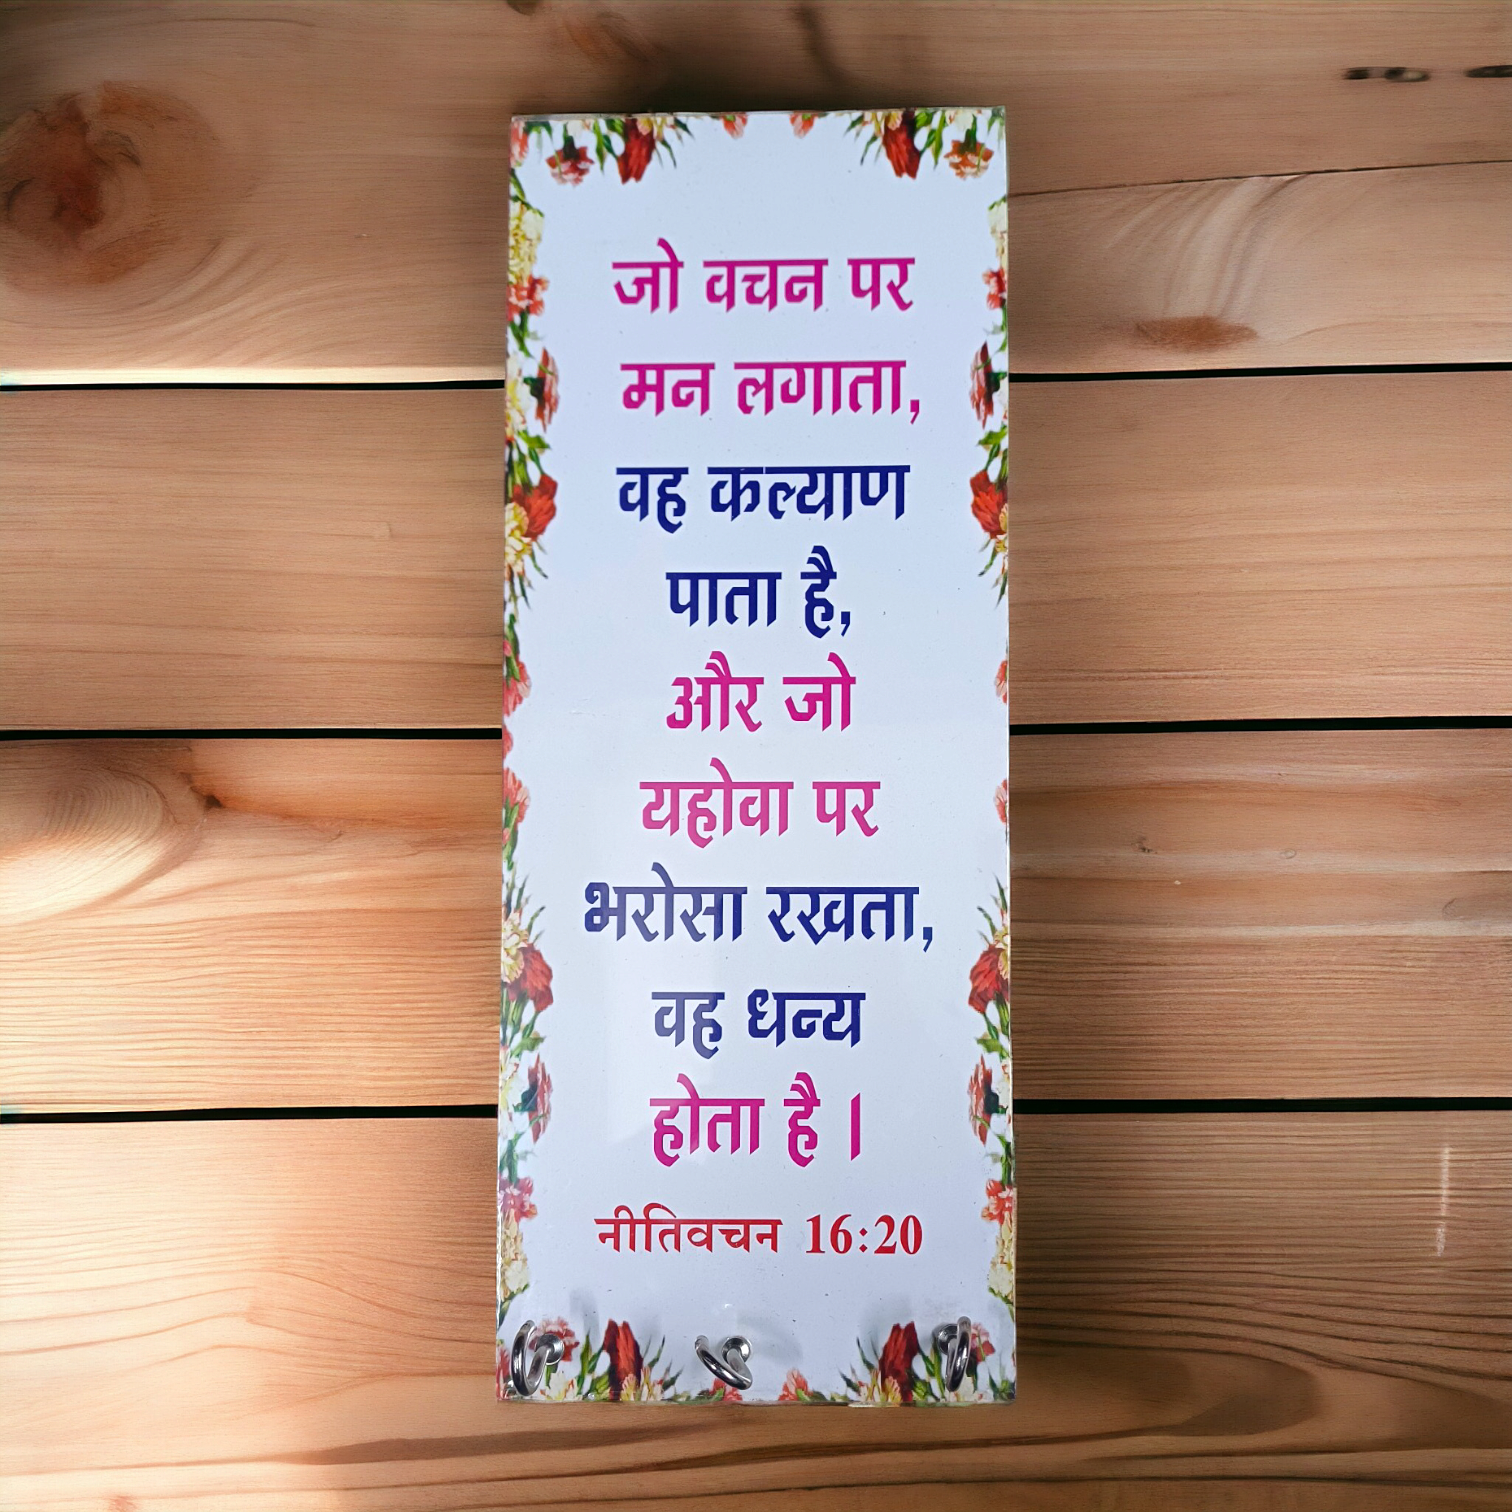 जो वचन पर
मन लगाता,
वह कल्याण
पाता है,
और जो
यहोवा पर
भरोसा रखता,
वह धन्य
होता है ।
नीतिवचन 16:20